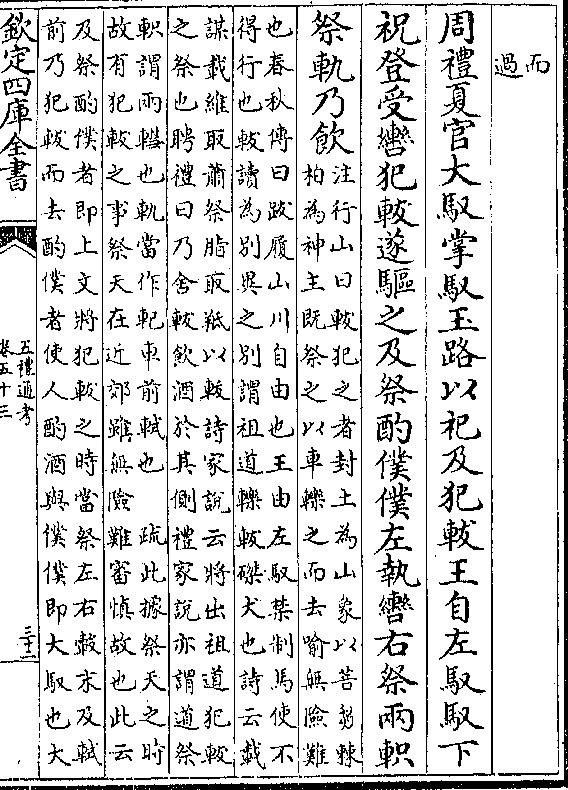 而
過
周禮夏官大馭掌馭玉路以祀及犯軷王自左馭馭下
祝登受轡犯軷遂驅之及祭酌僕僕左執轡右祭兩軹
祭軌乃飲
注行山曰軷犯之者封土為山象以菩芻棘
柏為神主既祭之以車轢之而去喻無險難
也春秋傳曰跋履山川自由也王由左馭禁制馬使不
得行也軷讀為別異之別謂祖道轢軷磔犬也詩云載
謀載維取蕭祭脂取羝以軷詩家說云將出祖道犯軷
之祭也聘禮曰乃舍軷飲酒於其側禮家說亦謂道祭
軹謂兩轊也軌當作軓車前軾也　疏此據祭天之時
故有犯軷之事祭天在近郊雖無險難審慎故也此云
及祭酌僕者即上文將犯軷之時當祭左右轂末及軾
前乃犯軷而去酌僕者使人酌酒與僕僕即大馭也大
欽定四庫全書
五禮通考
卷五十三